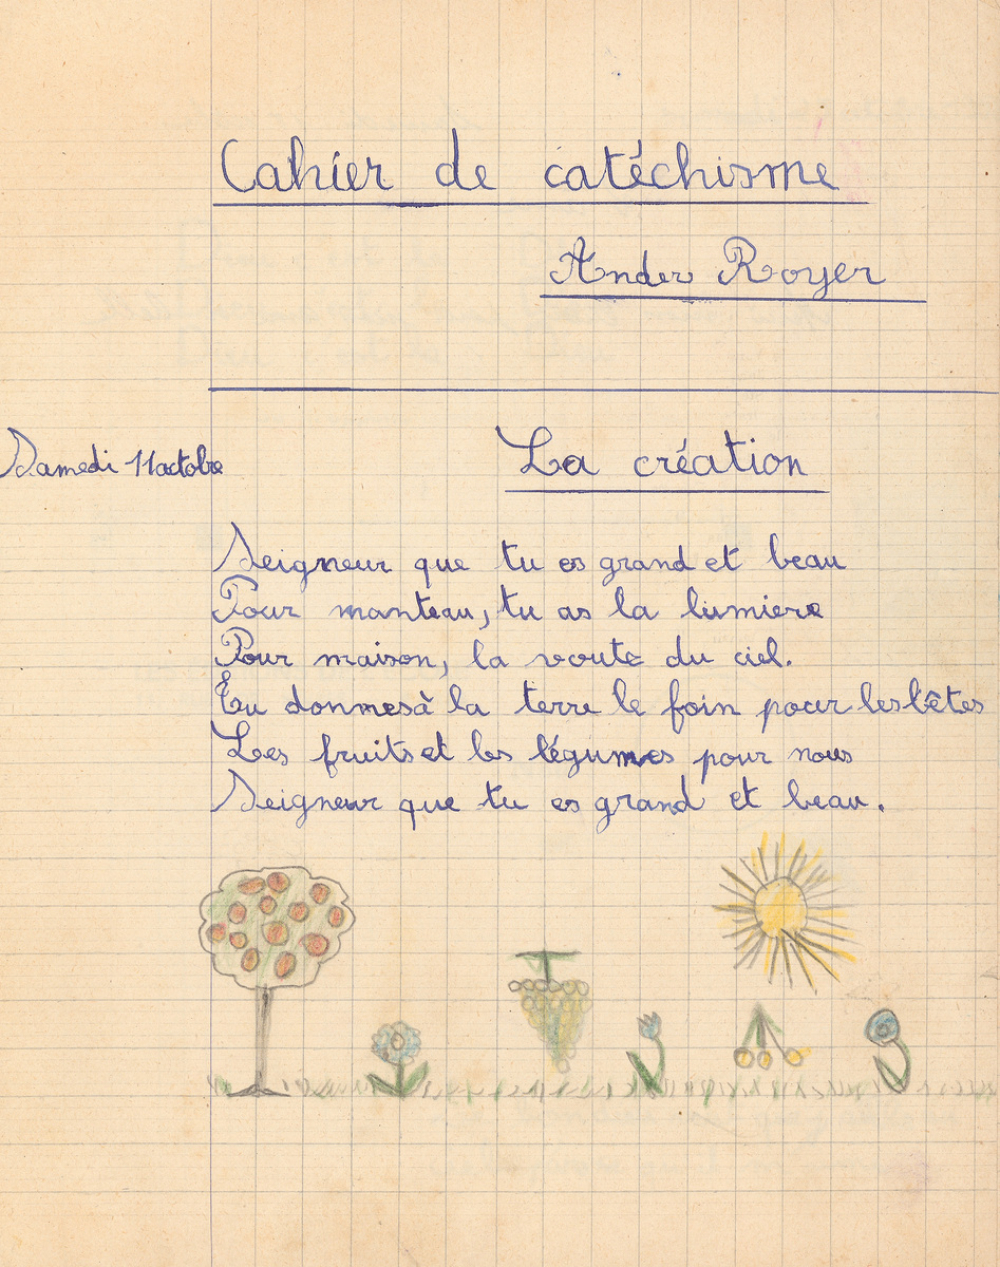 Cahier de catéchisme
Ander Royer
Samedi 11 octobre
La création
Seigneur que tu es grand et beau
Pour manteau, tu as la lumiere
Pour maison, la voute du ciel.
Tu donnes à la terre le foin pour les bêtes
Les fruits et les légumes pour nous
Seigneur que tu es grand et beau.